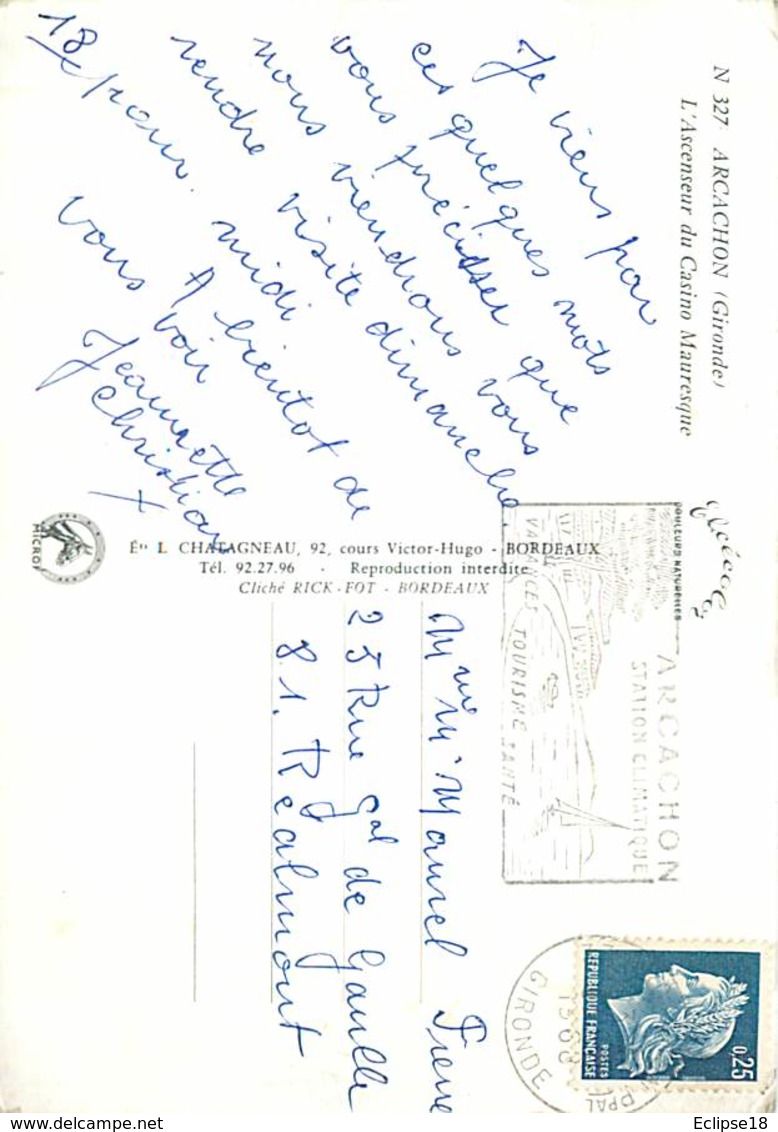 N 327 ARCACHON (Gironde)
L'Ascenseur du Casino Mauresque
Je viens par
ces quelques mots
vous préciser que
nous viendrons vous
rendre visite dimanche
18 pour midi
A bientot de
vous voir
Jeannette
Christian
COULEURS NATURELLES
MICRO
Éts L CHATAGNEAU, 92, cours Victor-Hugo - BORDEAUX
Tél. 92.27.96 - Reproduction interdite
Cliché RICK-FOT - BORDEAUX
ARCACHON
STATION CLIMATIQUE
VACANCES TOURISME SANTÉ
PPAL
GIRONDE
RÉPUBLIQUE FRANÇAISE
POSTES
0,25
Mme Mr Maurel Pierre
25 Rue Gal de Gaulle
81. Réalmont
Eclipse18